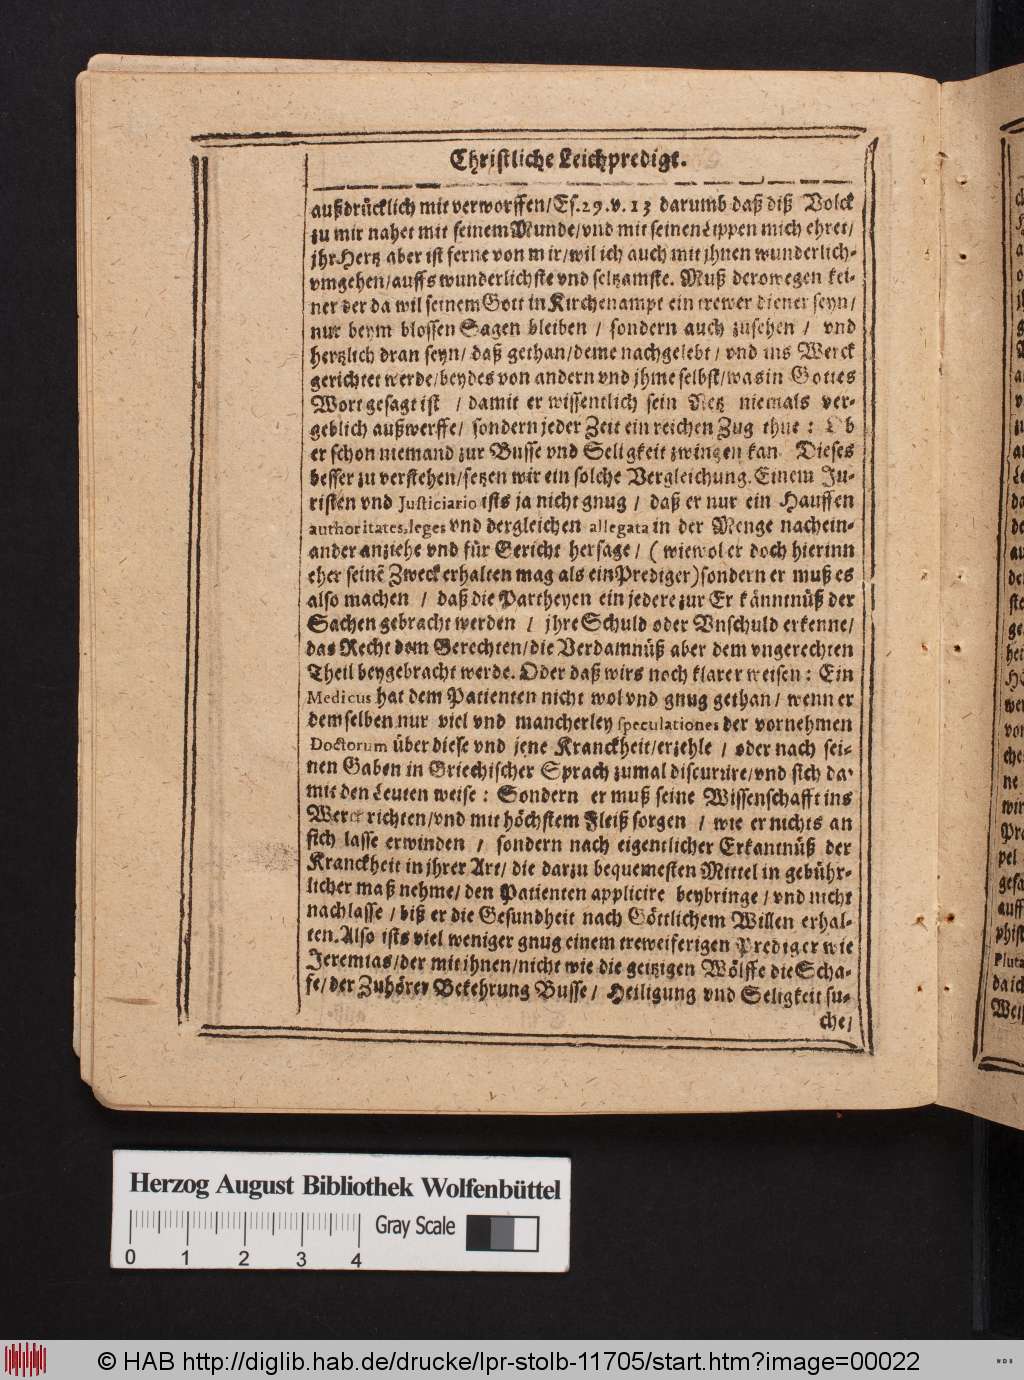 Christliche Leichpredigt.
außdrücklich mit verworffen/Es.29.v.13 darumb daß diß Volck
zu mir nahet mit seinem Munde/vnd mit seinen Lippen mich ehret/
jhr Hertz aber ist ferne von mir/wil ich auch mit jhnen wunderlich-
vmgehen/auffs wunderlichste vnd seltzamste. Muß derowegen kei-
ner der da wil seinem Gott in Kirchenampt ein trewer diener seyn/
nur beym blossen Sagen bleiben / sondern auch zusehen / vnd
hertzlich dran seyn/ daß gethan/deme nachgelebt/ vnd ins Werck
gerichtet werde/beydes von andern vnd jhme selbst/was in Gottes
Wort gesagt ist / damit er wissentlich sein Netz niemals ver-
geblich außwerffe/ sondern jeder Zeit ein reichen Zug thue : Ob
er schon niemand zur Busse vnd Seligkeit zwingen kan Dieses
besser zu verstehen/setzen wir ein solche Vergleichung. Einem Ju-
risten vnd Justiciario ists ja nicht gnug / daß er nur ein Hauffen
authoritates, leges vnd dergleichen allegata in der Menge nachein-
ander anziehe vnd für Gericht hersage/ ( wiewol er doch hierinn
eher seinē Zweck erhalten mag als ein Prediger) sondern er muß es
also machen / daß die Partheyen ein jedere zur Erkänntnüß der
Sachen gebracht werden / jhre Schuld oder Vnschuld erkenne/
das Recht dem Gerechten/die Verdamnüß aber dem vngerechten
Theil beygebracht werde. Oder daß wirs noch klarer weisen : Ein
Medicus hat dem Patienten nicht wol vnd gnug gethan/ wenn er
demselben nur viel vnd mancherley speculationes der vornehmen
Doctorum über diese vnd jene Kranckheit/erzehle / oder nach sei-
nen Gaben in Griechischer Sprach zumal discurire/vnd sich da-
mit den Leuten weise : Sondern er muß seine Wissenschafft ins
Werck richten/vnd mit höchstem Fleiß sorgen / wie er nichts an
sich lasse erwinden / sondern nach eigentlicher Erkantnüß der
Kranckheit in jhrer Art/ die darzu bequemesten Mittel in gebühr-
licher maß nehme/ den Patienten applicire beybringe / vnd nicht
nachlasse / biß er die Gesundheit nach Göttlichem Willen erhal-
ten. Also ists viel weniger gnug einem treweiferigen Prediger wie
Jeremias/der mit ihnen/nicht wie die geitzigen Wölffe die Scha-
fe/der Zuhörer Bekehrung Busse/ Heiligung vnd Seligkeit su-
che/
Herzog August Bibliothek Wolfenbüttel
Gray Scale
0 1 2 3 4
© HAB http://diglib.hab.de/drucke/lpr-stolb-11705/start.htm?image=00022